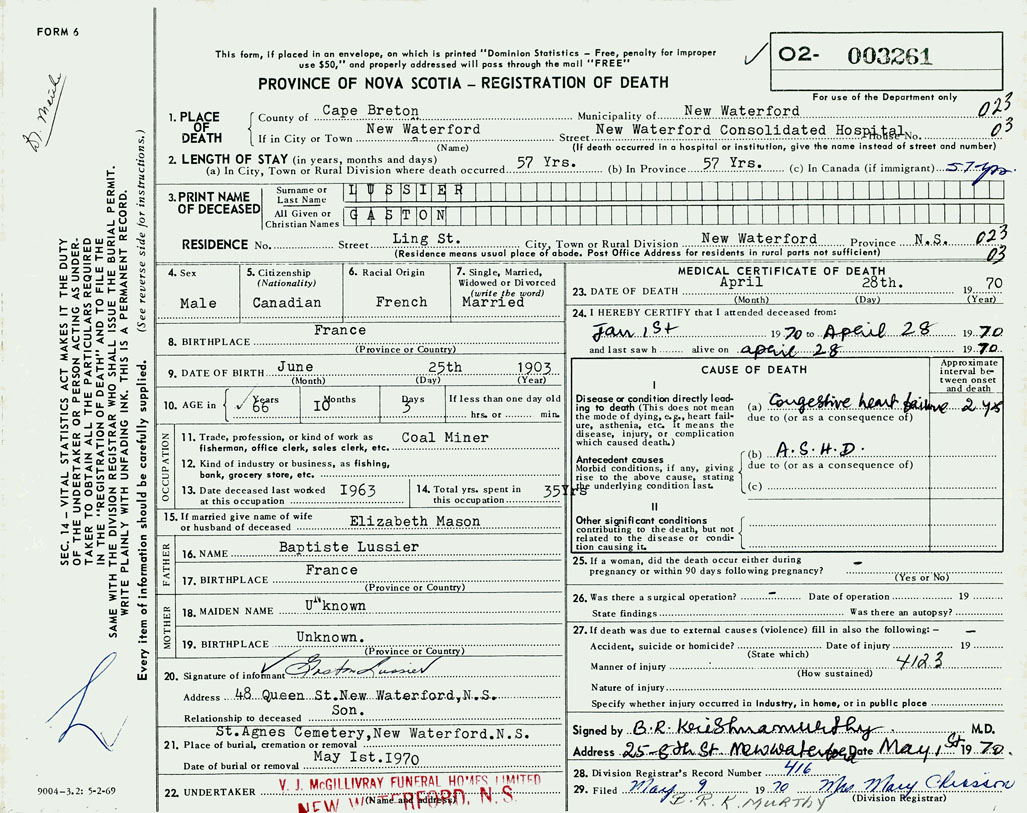 FORM 6
This form, if placed in an envelope, on which is printed "Dominion Statistics – Free, penalty for improper
use $50," and properly addressed will pass through the mail "FREE"
O2- 003261
PROVINCE OF NOVA SCOTIA – REGISTRATION OF DEATH
For use of the Department only
1. PLACE OF DEATH
County of Cape Breton Municipality of New Waterford 023
If in City or Town New Waterford Street New Waterford Consolidated Hospital House No. 03
(Name) (If death occurred in a hospital or institution, give the name instead of street and number)
2. LENGTH OF STAY (in years, months and days)
(a) In City, Town or Rural Division where death occurred 57 Yrs. (b) In Province 57 Yrs. (c) In Canada (if immigrant) 57 yrs.
3. PRINT NAME OF DECEASED
Surname or Last Name LUSSIER
All Given or Christian Names GASTON
RESIDENCE No. Street Ling St. City, Town or Rural Division New Waterford Province N.S. 023
(Residence means usual place of abode. Post Office Address for residents in rural parts not sufficient) 03
4. Sex
Male
5. Citizenship
(Nationality)
Canadian
6. Racial Origin
French
7. Single, Married,
Widowed or Divorced
(write the word)
Married
8. BIRTHPLACE France
(Province or Country)
9. DATE OF BIRTH June 25th 1903
(Month) (Day) (Year)
10. AGE in Years 66 Months IO Days 3 If less than one day old
hrs. or min.
OCCUPATION
11. Trade, profession, or kind of work as Coal Miner
fisherman, office clerk, sales clerk, etc.
12. Kind of industry or business, as fishing,
bank, grocery store, etc.
13. Date deceased last worked I963
at this occupation
14. Total yrs. spent in 35Yrs
this occupation
15. If married give name of wife Elizabeth Mason
or husband of deceased
FATHER
16. NAME Baptiste Lussier
17. BIRTHPLACE France
(Province or Country)
MOTHER
18. MAIDEN NAME Unknown
19. BIRTHPLACE Unknown.
(Province or Country)
20. Signature of informant Gaston Lussier
Address 48 Queen St.New Waterford,N.S.
Relationship to deceased Son.
St.Agnes Cemetery,New Waterford.N.S.
21. Place of burial, cremation or removal
Date of burial or removal May Ist.I970
22. UNDERTAKER V. J. McGILLIVRAY FUNERAL HOMES LIMITED
(Name and address)
NEW WATERFORD, N. S.
MEDICAL CERTIFICATE OF DEATH
23. DATE OF DEATH April 28th. 19 70
(Month) (Day) (Year)
24. I HEREBY CERTIFY that I attended deceased from:
Jan 1st 19 70 to April 28 19 70
and last saw h alive on april 28 19 70
CAUSE OF DEATH
Approximate
interval be-
tween onset
and death
I
Disease or condition directly lead-
ing to death (This does not mean
the mode of dying, e.g., heart fail-
ure, asthenia, etc. It means the
disease, injury, or complication
which caused death.)
(a) Congestive heart failure 2 yrs
due to (or as a consequence of)
Antecedent causes
Morbid conditions, if any, giving
rise to the above cause, stating
the underlying condition last.
(b) A.S.H.D.
due to (or as a consequence of)
(c)
II
Other significant conditions
contributing to the death, but not
related to the disease or condi-
tion causing it.
25. If a woman, did the death occur either during
pregnancy or within 90 days following pregnancy? –
(Yes or No)
26. Was there a surgical operation? – Date of operation 19
State findings Was there an autopsy?
27. If death was due to external causes (violence) fill in also the following: – –
Accident, suicide or homicide? Date of injury 19
(State which)
Manner of injury 4123
(How sustained)
Nature of injury
Specify whether injury occurred in industry, in home, or in public place
Signed by B.R. Krishnamurthy M.D.
Address 25-8th St. New waterford Date May 1st 19 70.
28. Division Registrar's Record Number 416
29. Filed May 9 19 70 Mrs Mary Chiasson
(Division Registrar)
B. R. K. MURTHY
SEC. 14 – VITAL STATISTICS ACT MAKES IT THE DUTY
OF THE UNDERTAKER OR PERSON ACTING AS UNDER-
TAKER TO OBTAIN ALL THE PARTICULARS REQUIRED
IN THE "REGISTRATION OF DEATH" AND TO FILE THE
SAME WITH THE DIVISION REGISTRAR WHO SHALL ISSUE THE BURIAL PERMIT.
WRITE PLAINLY WITH UNFADING INK. THIS IS A PERMANENT RECORD.
Every item of information should be carefully supplied. (See reverse side for instructions.)
9004-3.2: 5-2-69